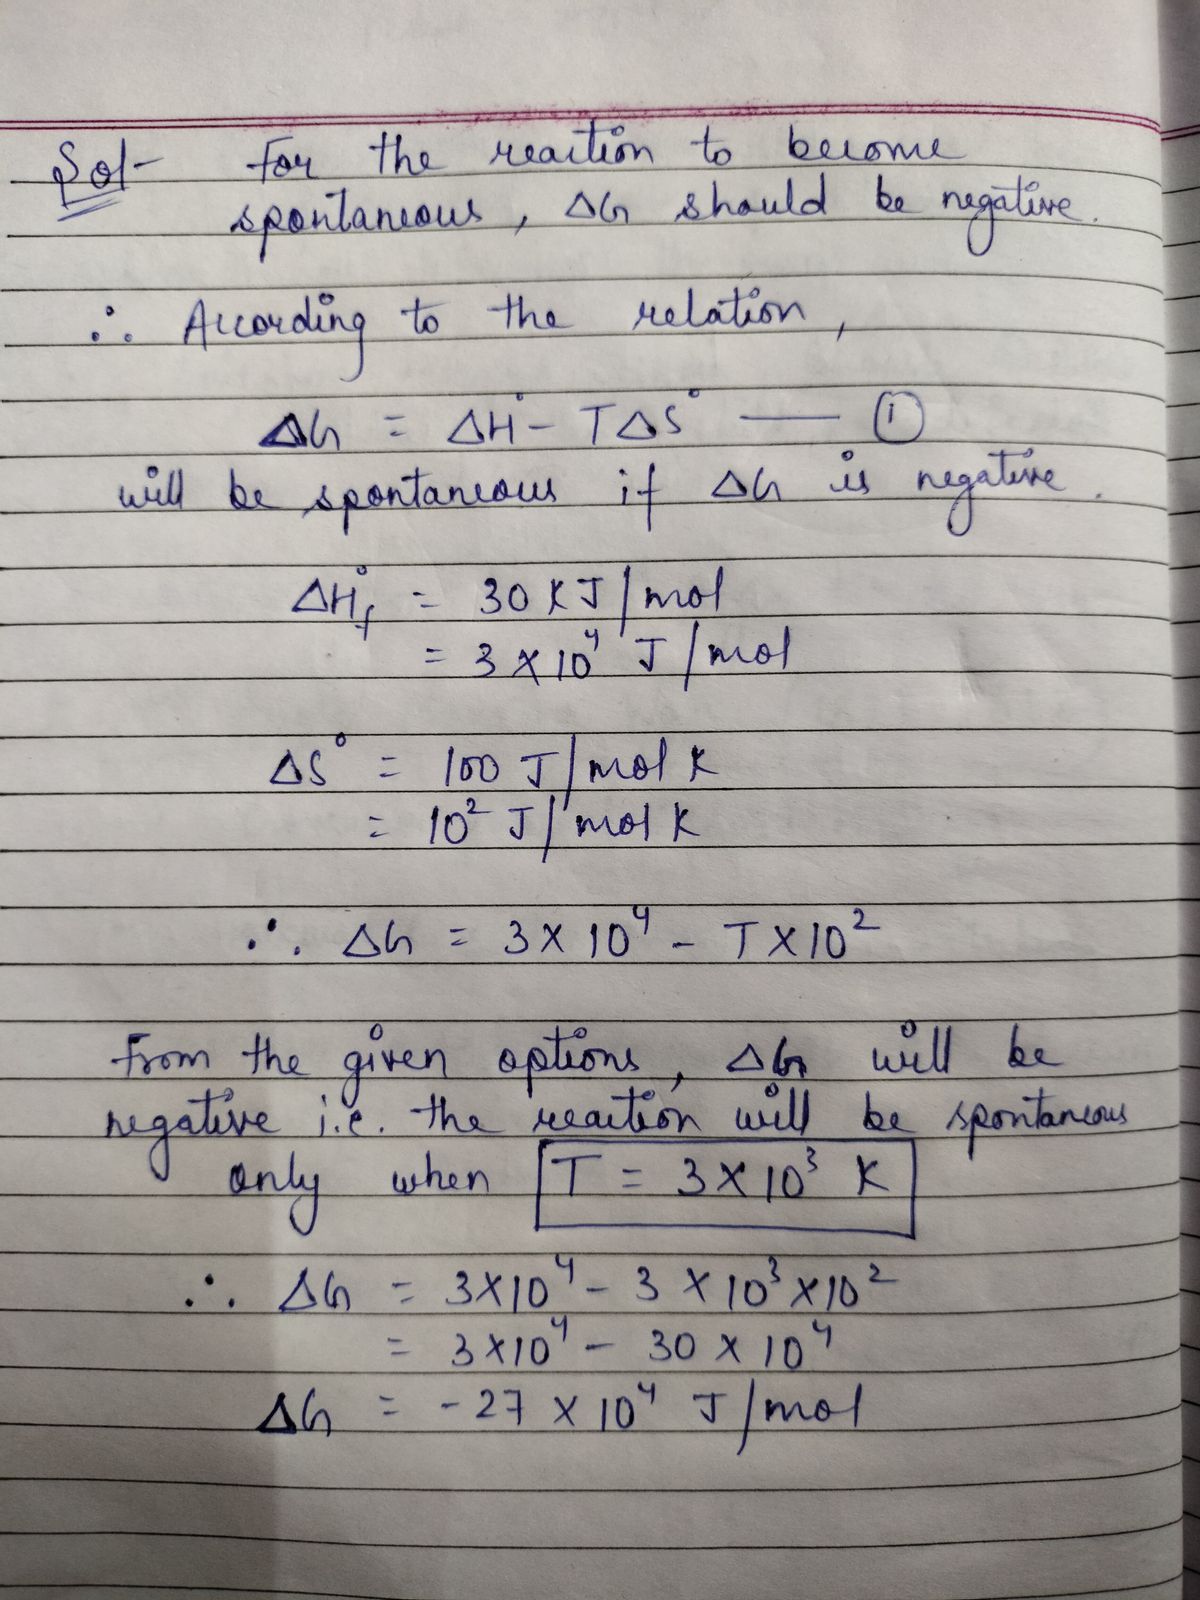 Sol- For the reaction to become
spontaneous, ΔG should be negative.
∴ According to the relation,
ΔG = ΔH° - TΔS° —— ①
will be spontaneous if ΔG is negative.
ΔH°f = 30 KJ/mol
= 3×10⁴ J/mol
ΔS° = 100 J/mol K
= 10² J/mol K
∴ ΔG = 3×10⁴ - T×10²
From the given options, ΔG will be
negative i.e. the reaction will be spontaneous
only when T = 3×10³ K
∴ ΔG = 3×10⁴ - 3×10³×10²
= 3×10⁴ - 30×10⁴
ΔG = -27×10⁴ J/mol